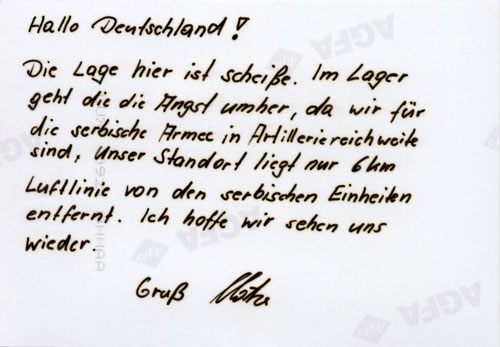 Hallo Deutschland!
Die Lage hier ist scheiße. Im Lager
geht die die Angst umher, da wir für
die serbische Armee in Artilleriereichweite
sind, Unser Standort liegt nur 6km
Luftlinie von den serbischen Einheiten
entfernt. Ich hoffe wir sehen uns
wieder.
Gruß
AGFA
AGFA
AGFA